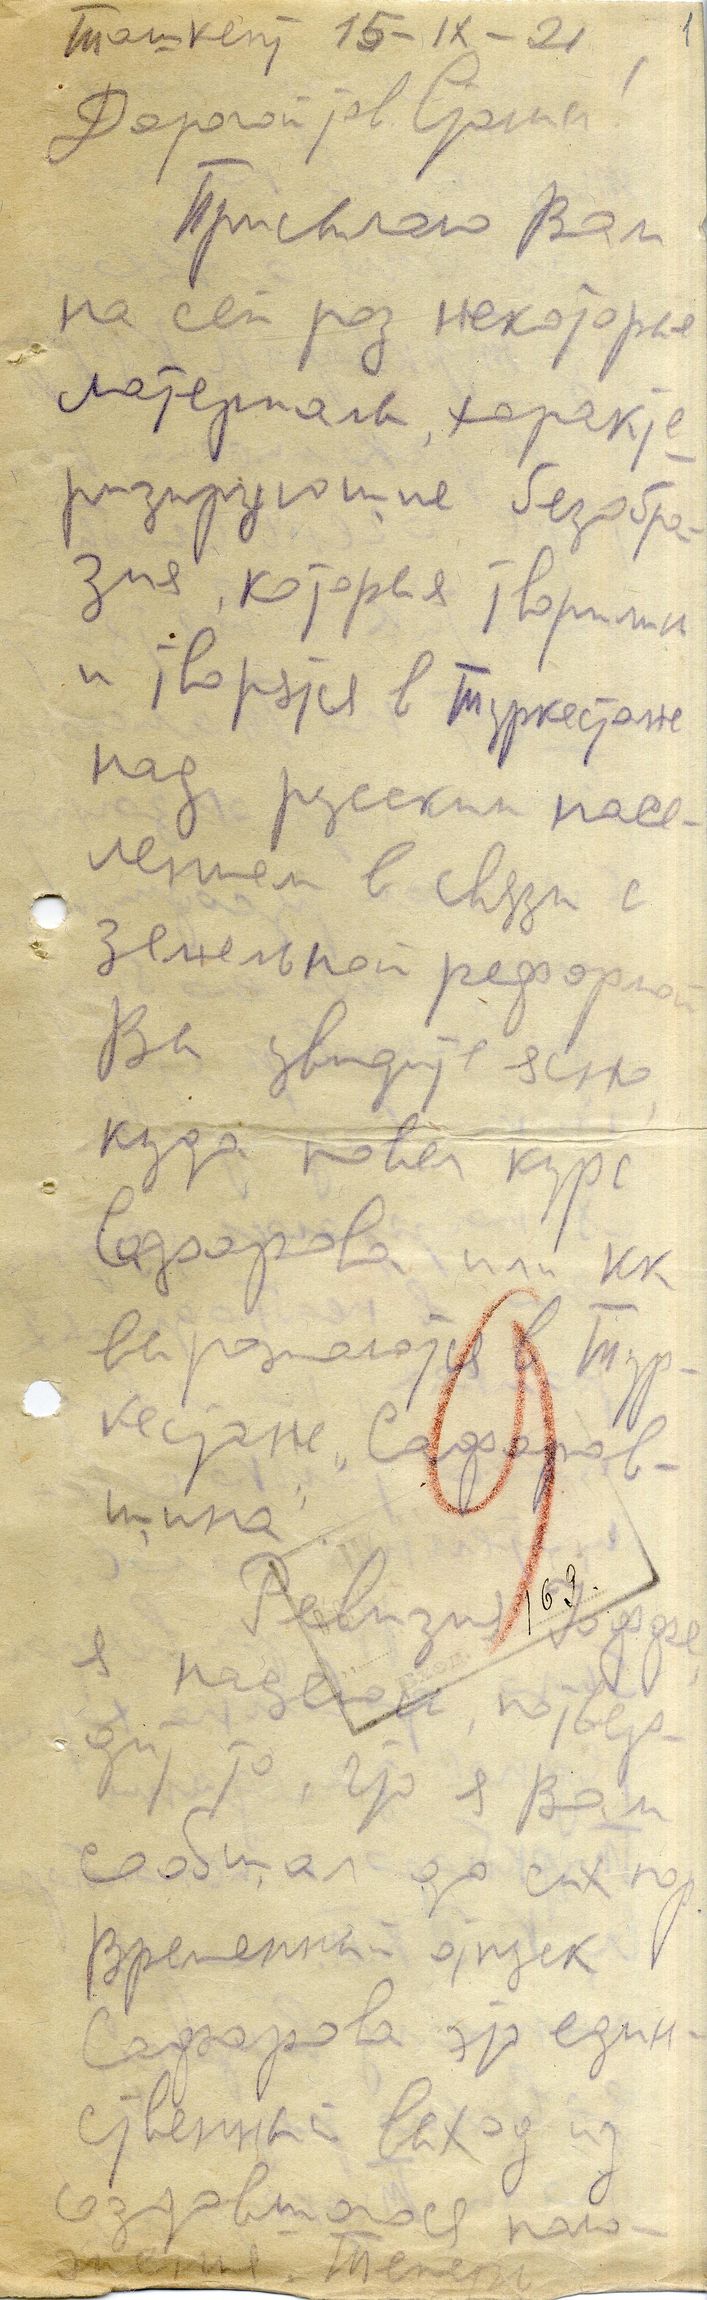 Ташкент 15-IX-21
1
Дорогой тов. Сталин!
Присылаю Вам
на сей раз некоторые
материалы, характе-
ризирующие безобра-
зия, которыя творились
и творятся в Туркестане
над русским насе-
лением в связи с
земельной реформой
Вы увидите ясно,
куда повел курс
Сафарова или как
выражаются в Тур-
кестане „Сафаров-
щина"
163.
Ревизия Иоффе,
я надеюсь, подтвер-
дит то, что я Вам
сообщал до сих пор.
Временный отпуск
Сафарова это един-
ственный выход из
создавшагося поло-
жения. Теперь